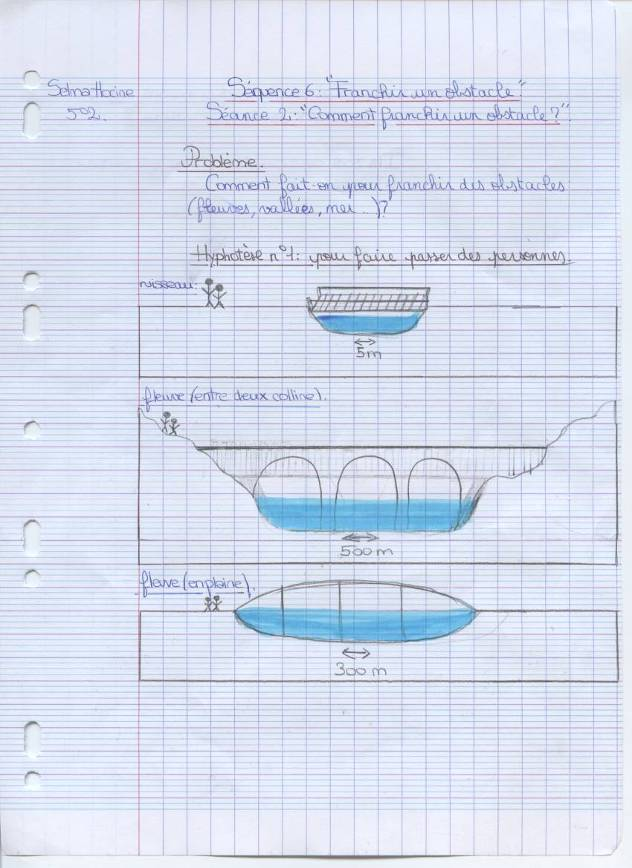 Selma Hocine
502.
Séquence 6: "Franchir un obstacle"
Séance 2: "Comment franchir un obstacle?"
Problème.
Comment fait-on pour franchir des obstacles
(fleuves, vallées, mer...)?
Hyphotèse n°1: pour faire passer des personnes.
ruisseau:
5m
fleuve (entre deux colline).
500m
fleuve (en plaine).
300m